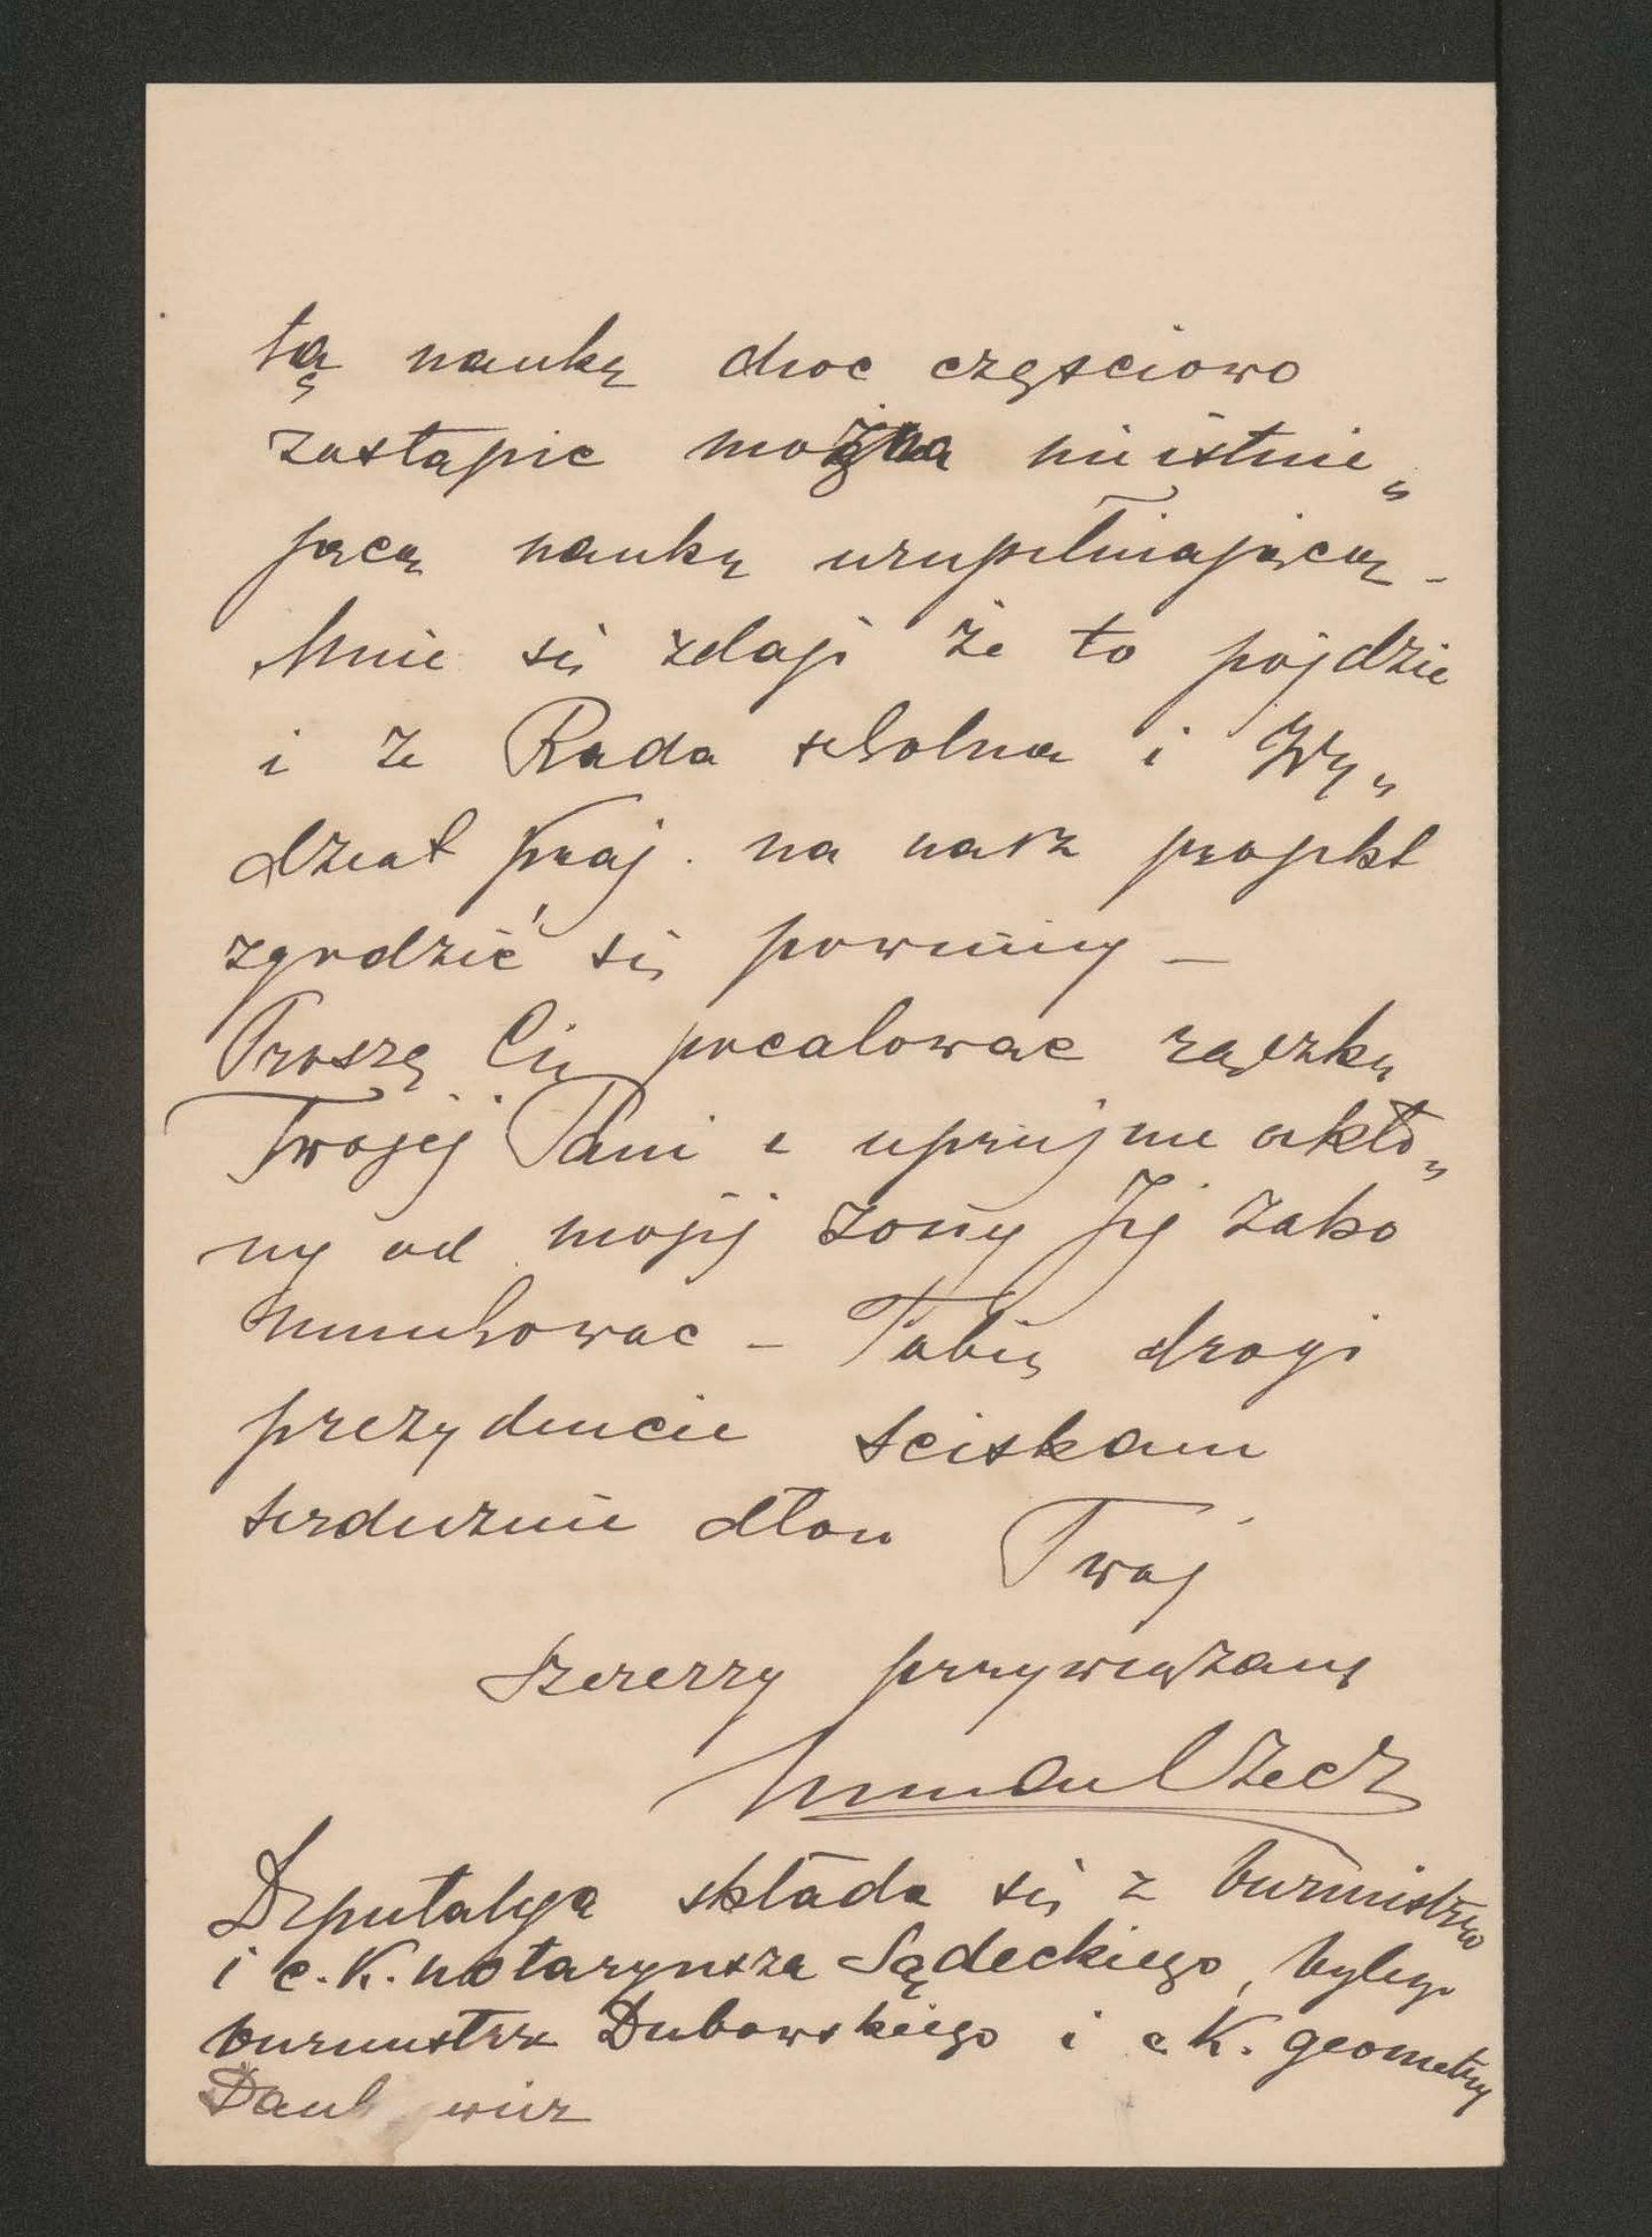 tą naukę choc częsciowo
zastąpic można nie istnie„
jącą naukę uzupełniającą -
Mnie się zdaje że to pójdzie
i że Rada szkolna i Wy„
dział kraj. na nasz projekt
zgodzić się powinny —
Proszę Cię pocałowac rączkę
Twojej Pani i uprzejme ukło„
ny od mojej żony Jej zako
munikowac - Tobie drogi
prezydencie sciskam
serdecznie dłon Twój
szczerze przywiązany
Deputacya składa się z burmistrza
i c. K. notaryusza Sądeckiego, byłego
burmistrza Dubowskiego i c K. geometry